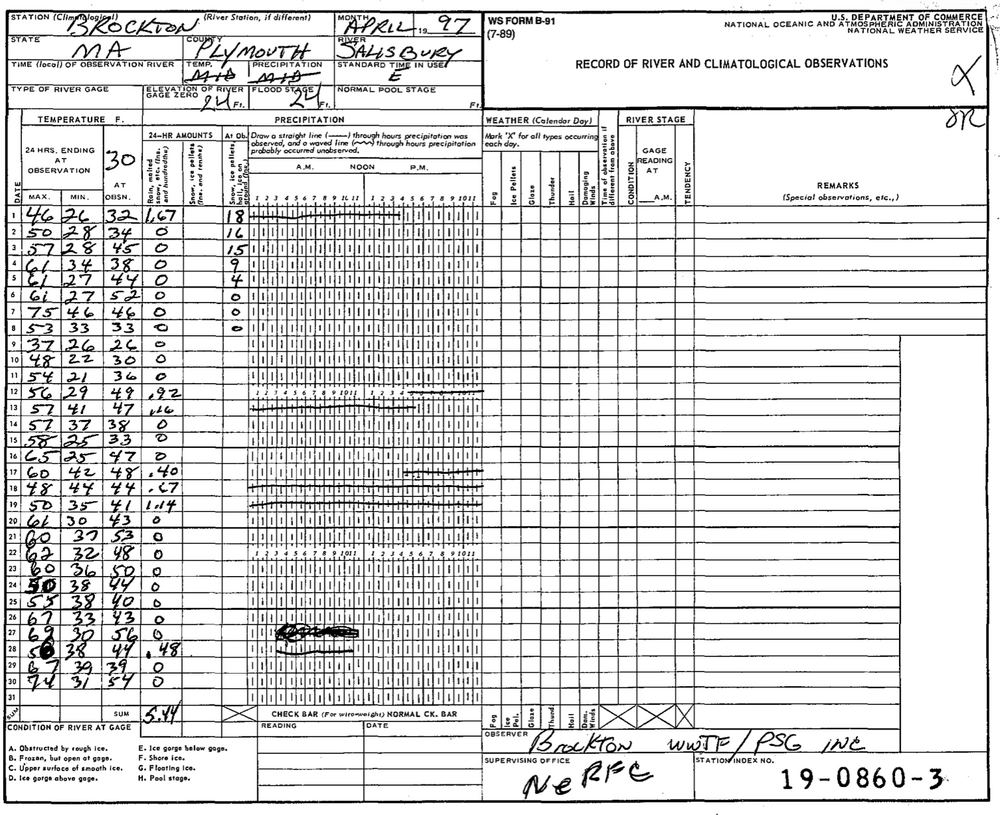 STATION (Climatological) BROCKTON (River Station, if different) MONTH APRIL 19 97
STATE MA COUNTY PLYMOUTH RIVER SALISBURY
TIME (local) OF OBSERVATION RIVER TEMP. MID PRECIPITATION MID STANDARD TIME IN USE E
TYPE OF RIVER GAGE ELEVATION OF RIVER GAGE ZERO 24 Ft. FLOOD STAGE 24 Ft. NORMAL POOL STAGE Ft.
WS FORM B-91
(7-89)
U.S. DEPARTMENT OF COMMERCE
NATIONAL OCEANIC AND ATMOSPHERIC ADMINISTRATION
NATIONAL WEATHER SERVICE
RECORD OF RIVER AND CLIMATOLOGICAL OBSERVATIONS
TEMPERATURE F. PRECIPITATION WEATHER (Calendar Day) RIVER STAGE
24 HRS. ENDING AT OBSERVATION 30 AT OBSN.
24-HR AMOUNTS At Ob.
Rain, melted snow, etc. (Ins. and hundredths)
Snow, ice pellets (Ins. and tenths)
Snow, ice pellets, hail, ice on ground (Ins.)
Draw a straight line (——) through hours precipitation was observed, and a waved line (~~~) through hours precipitation probably occurred unobserved.
A.M. NOON P.M.
1 2 3 4 5 6 7 8 9 10 11 1 2 3 4 5 6 7 8 9 10 11
Mark 'X' for all types occurring each day.
Fog Ice Pellets Glaze Thunder Hail Damaging Winds
Time of observation if different from above
CONDITION GAGE READING AT A.M. TENDENCY
REMARKS
(Special observations, etc.,)
DATE MAX. MIN.
1 46 26 32 1.67 18
2 50 28 34 0 16
3 57 28 45 0 15
4 61 34 38 0 9
5 61 27 44 0 4
6 61 27 52 0 0
7 75 46 46 0 0
8 53 33 33 0 0
9 37 26 26 0
10 48 22 30 0
11 54 21 36 0
12 56 29 49 .92 1 2 3 4 5 6 7 8 9 10 11 1 2 3 4
13 57 41 47 .16
14 57 37 38 0
15 58 25 33 0
16 65 25 47 0
17 60 42 48 .40
18 48 44 44 .67
19 50 35 41 1.14
20 61 30 43 0
21 60 37 53 0
22 62 32 48 0 1 2 3 4 5 6 7 8 9 10 11 1 2 3 4 5 6 7 8 9 10 11
23 60 36 50 0
24 50 38 44 0
25 55 38 40 0
26 67 33 43 0
27 69 30 56 0
28 38 44 .48
29 67 39 39 0
30 74 31 54 0
31
SUM SUM 5.44 CHECK BAR (For wire-weight) NORMAL CK. BAR
Fog Ice Pel. Glaze Thund. Hail Dam. Winds
CONDITION OF RIVER AT GAGE READING DATE
A. Obstructed by rough ice. E. Ice gorge below gage.
B. Frozen, but open at gage. F. Shore ice.
C. Upper surface of smooth ice. G. Floating ice.
D. Ice gorge above gage. H. Pool stage.
OBSERVER BROCKTON WWTF/PSG INC
SUPERVISING OFFICE NeRFC STATION INDEX NO. 19-0860-3